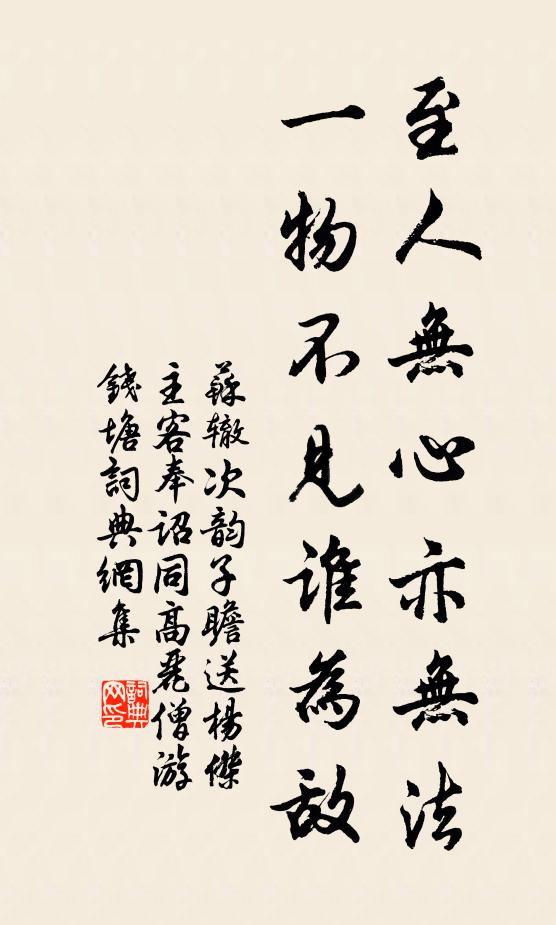 至人無心亦無法
一物不見誰為敵
蘇轍次韵子瞻送楊傑
主客奉詔同高麗僧游
錢塘詞典網集
詞典网印